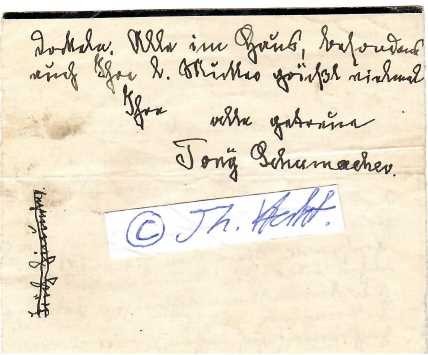 Alle im Haus, besonders
auch Ihre l. Mutter grüßt vielmal
Ihre alte getreue
Tony Schumacher.
© Th.